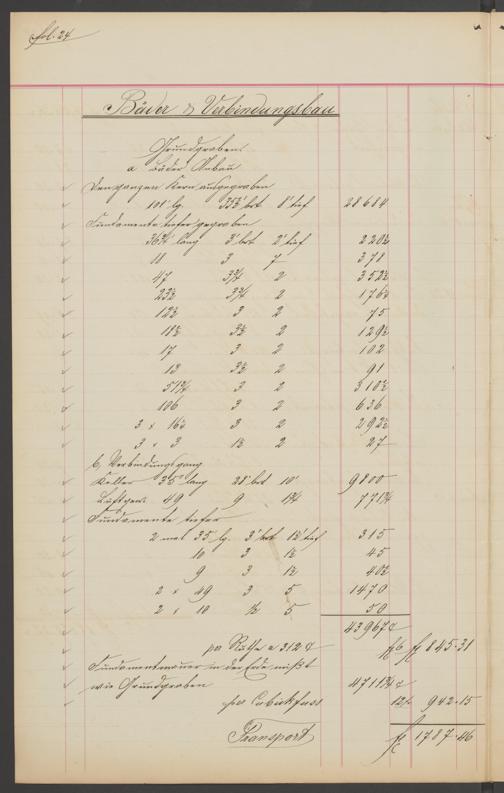 fol. 24
Bäder & Verbindungsbau
Grundgraben
a Bäder Anbau
Den ganzen Kern ausgegraben
101' lg. 35½' brt 8' tief 28684
Fundamente tiefer gegraben
36¾' lang 3' brt 2' tief 220½
18 3 7 378
47 3¾ 2 352½
23½ 3¾ 2 176¼
12½ 3 2 75
18½ 3½ 2 129½
17 3 2 102
13 3½ 2 91
51¾ 3 2 310½
106 3 2 636
3 x 16¼ 3 2 292½
3 x 3 1½ 2 27
b, Verbindungsgang
Keller 35' lang 28' brt 10' 9800
49 9 1¾ 771¾
Fundamente tiefer
2 mal 35' lg. 3' brt 1½' tief 315
10 3 1½ 45
9 3 1½ 40½
2 x 49 3 5 1470
2 x 10 ½ 5 50
43967
pr a 312 f 6 f 845.31
Fundamentmauer in der Erde mißt
wie Grundgraben 4711¾
pr Cubickfuss 12 942.15
Transport f 1787.46